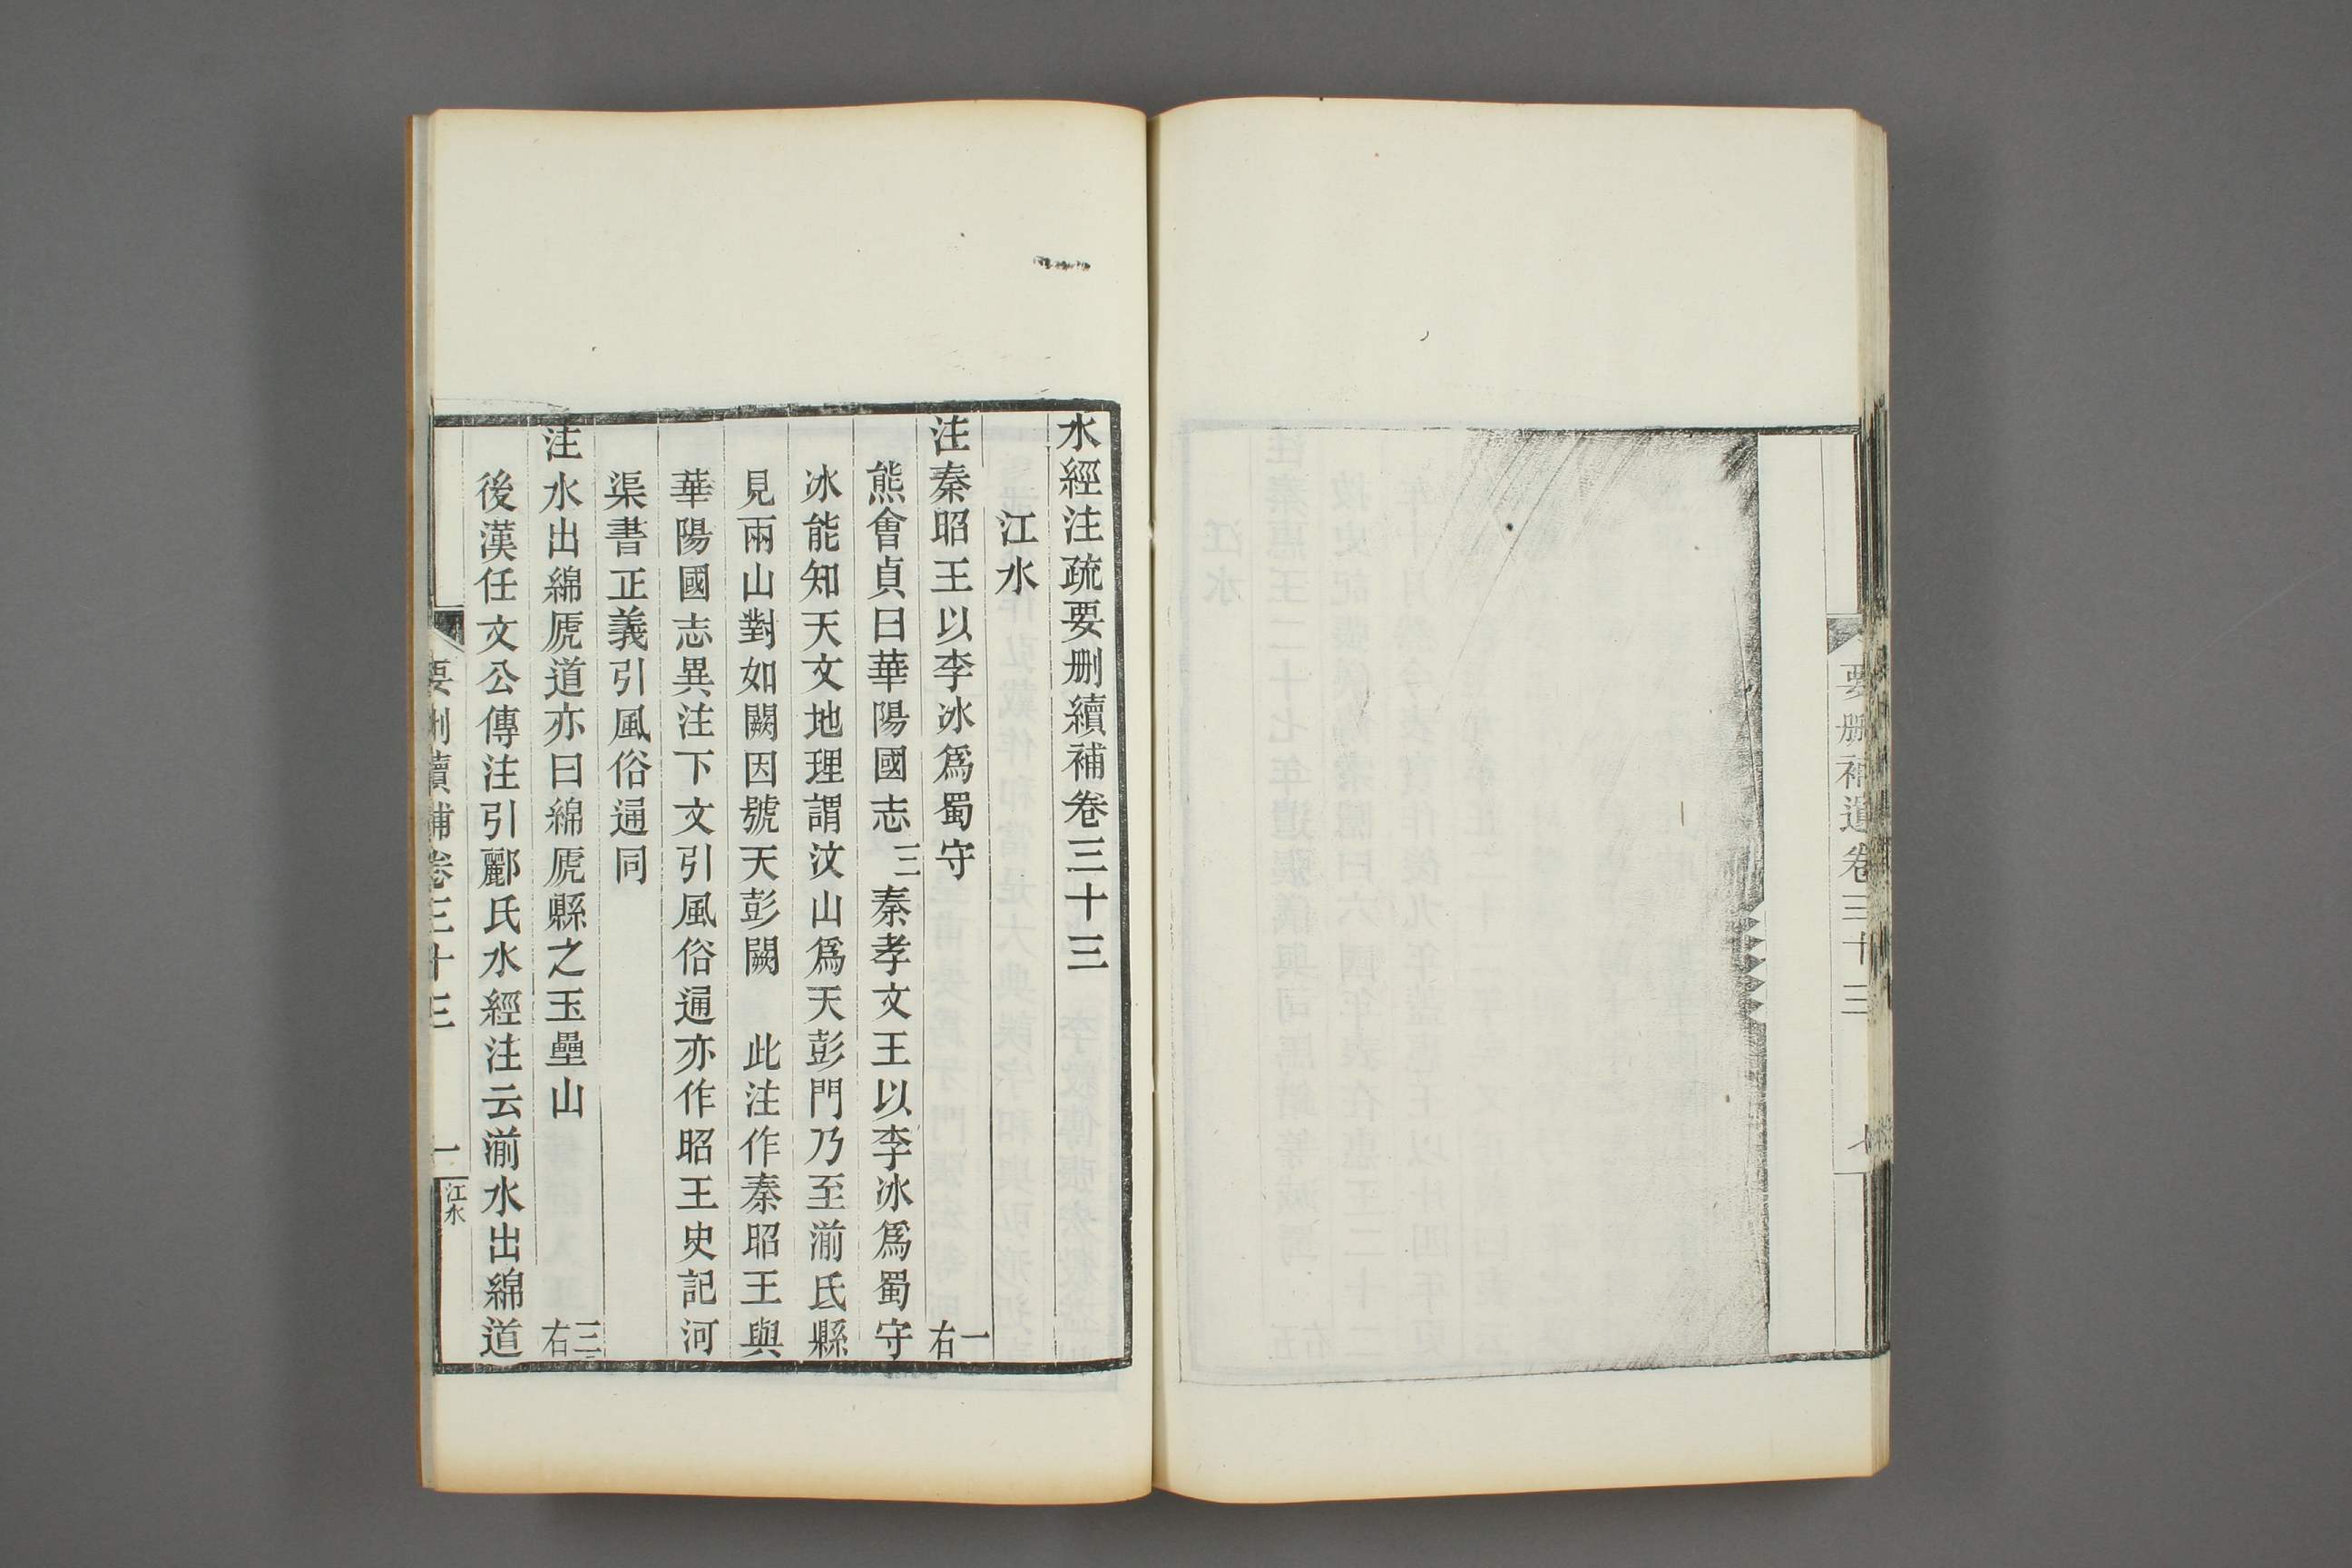 要删補遺卷三十三
七
水經注疏要删續補卷三十三
江水
注秦昭王以李冰爲蜀守 一右
熊會貞曰華陽國志三秦孝文王以李冰爲蜀守
冰能知天文地理謂汶山爲天彭門乃至湔氐縣
見兩山對如闕因號天彭闕 此注作秦昭王與
華陽國志異注下文引風俗通亦作昭王史記河
渠書正義引風俗通同
注水出綿虒道亦曰綿虒縣之玉壘山 三右
後漢任文公傳注引酈氏水經注云湔水出綿道
要删續補卷三十三 一 江水